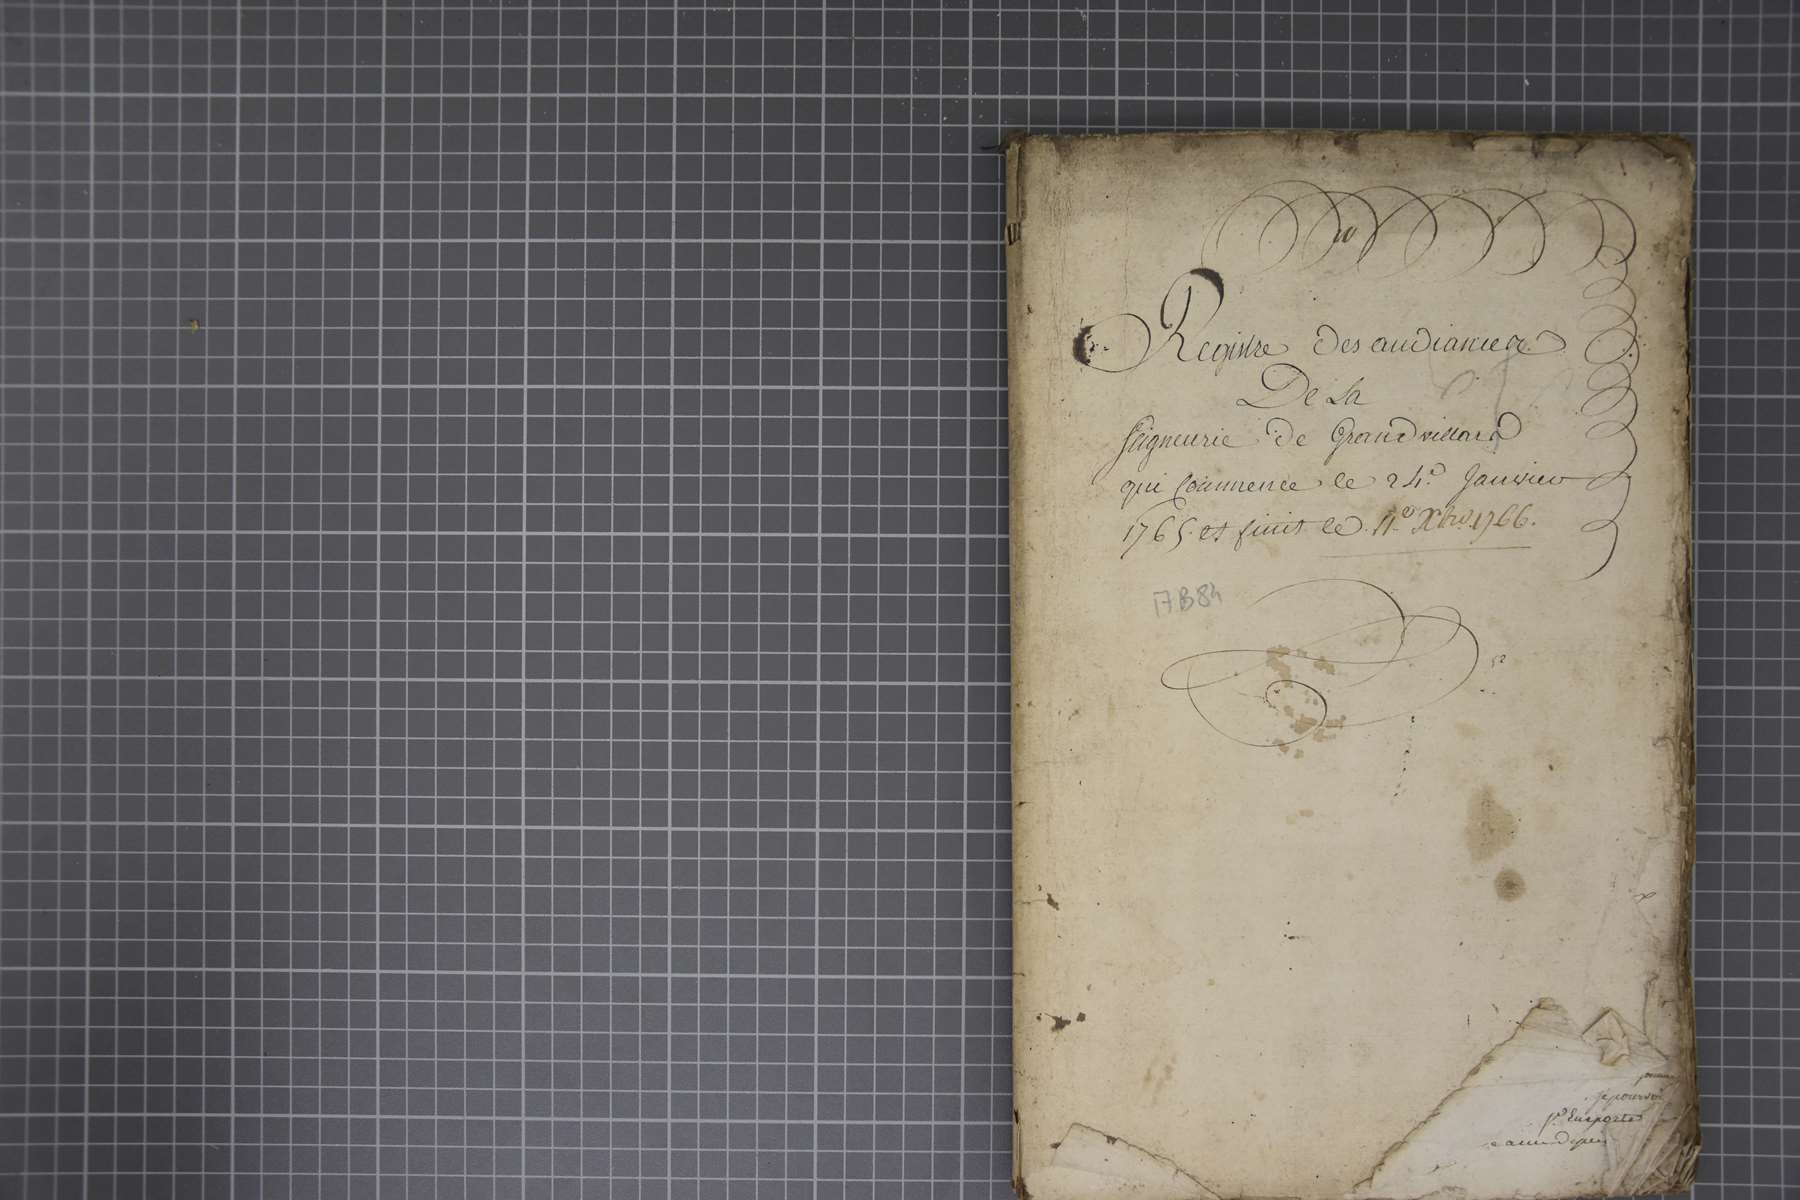 Registre des audiances
De La
seigneurie de Grandvillard
qui Commence le 24.e Janvier
1765. et finit le 11.e Xbre 1766.
17B84
se pourvoi